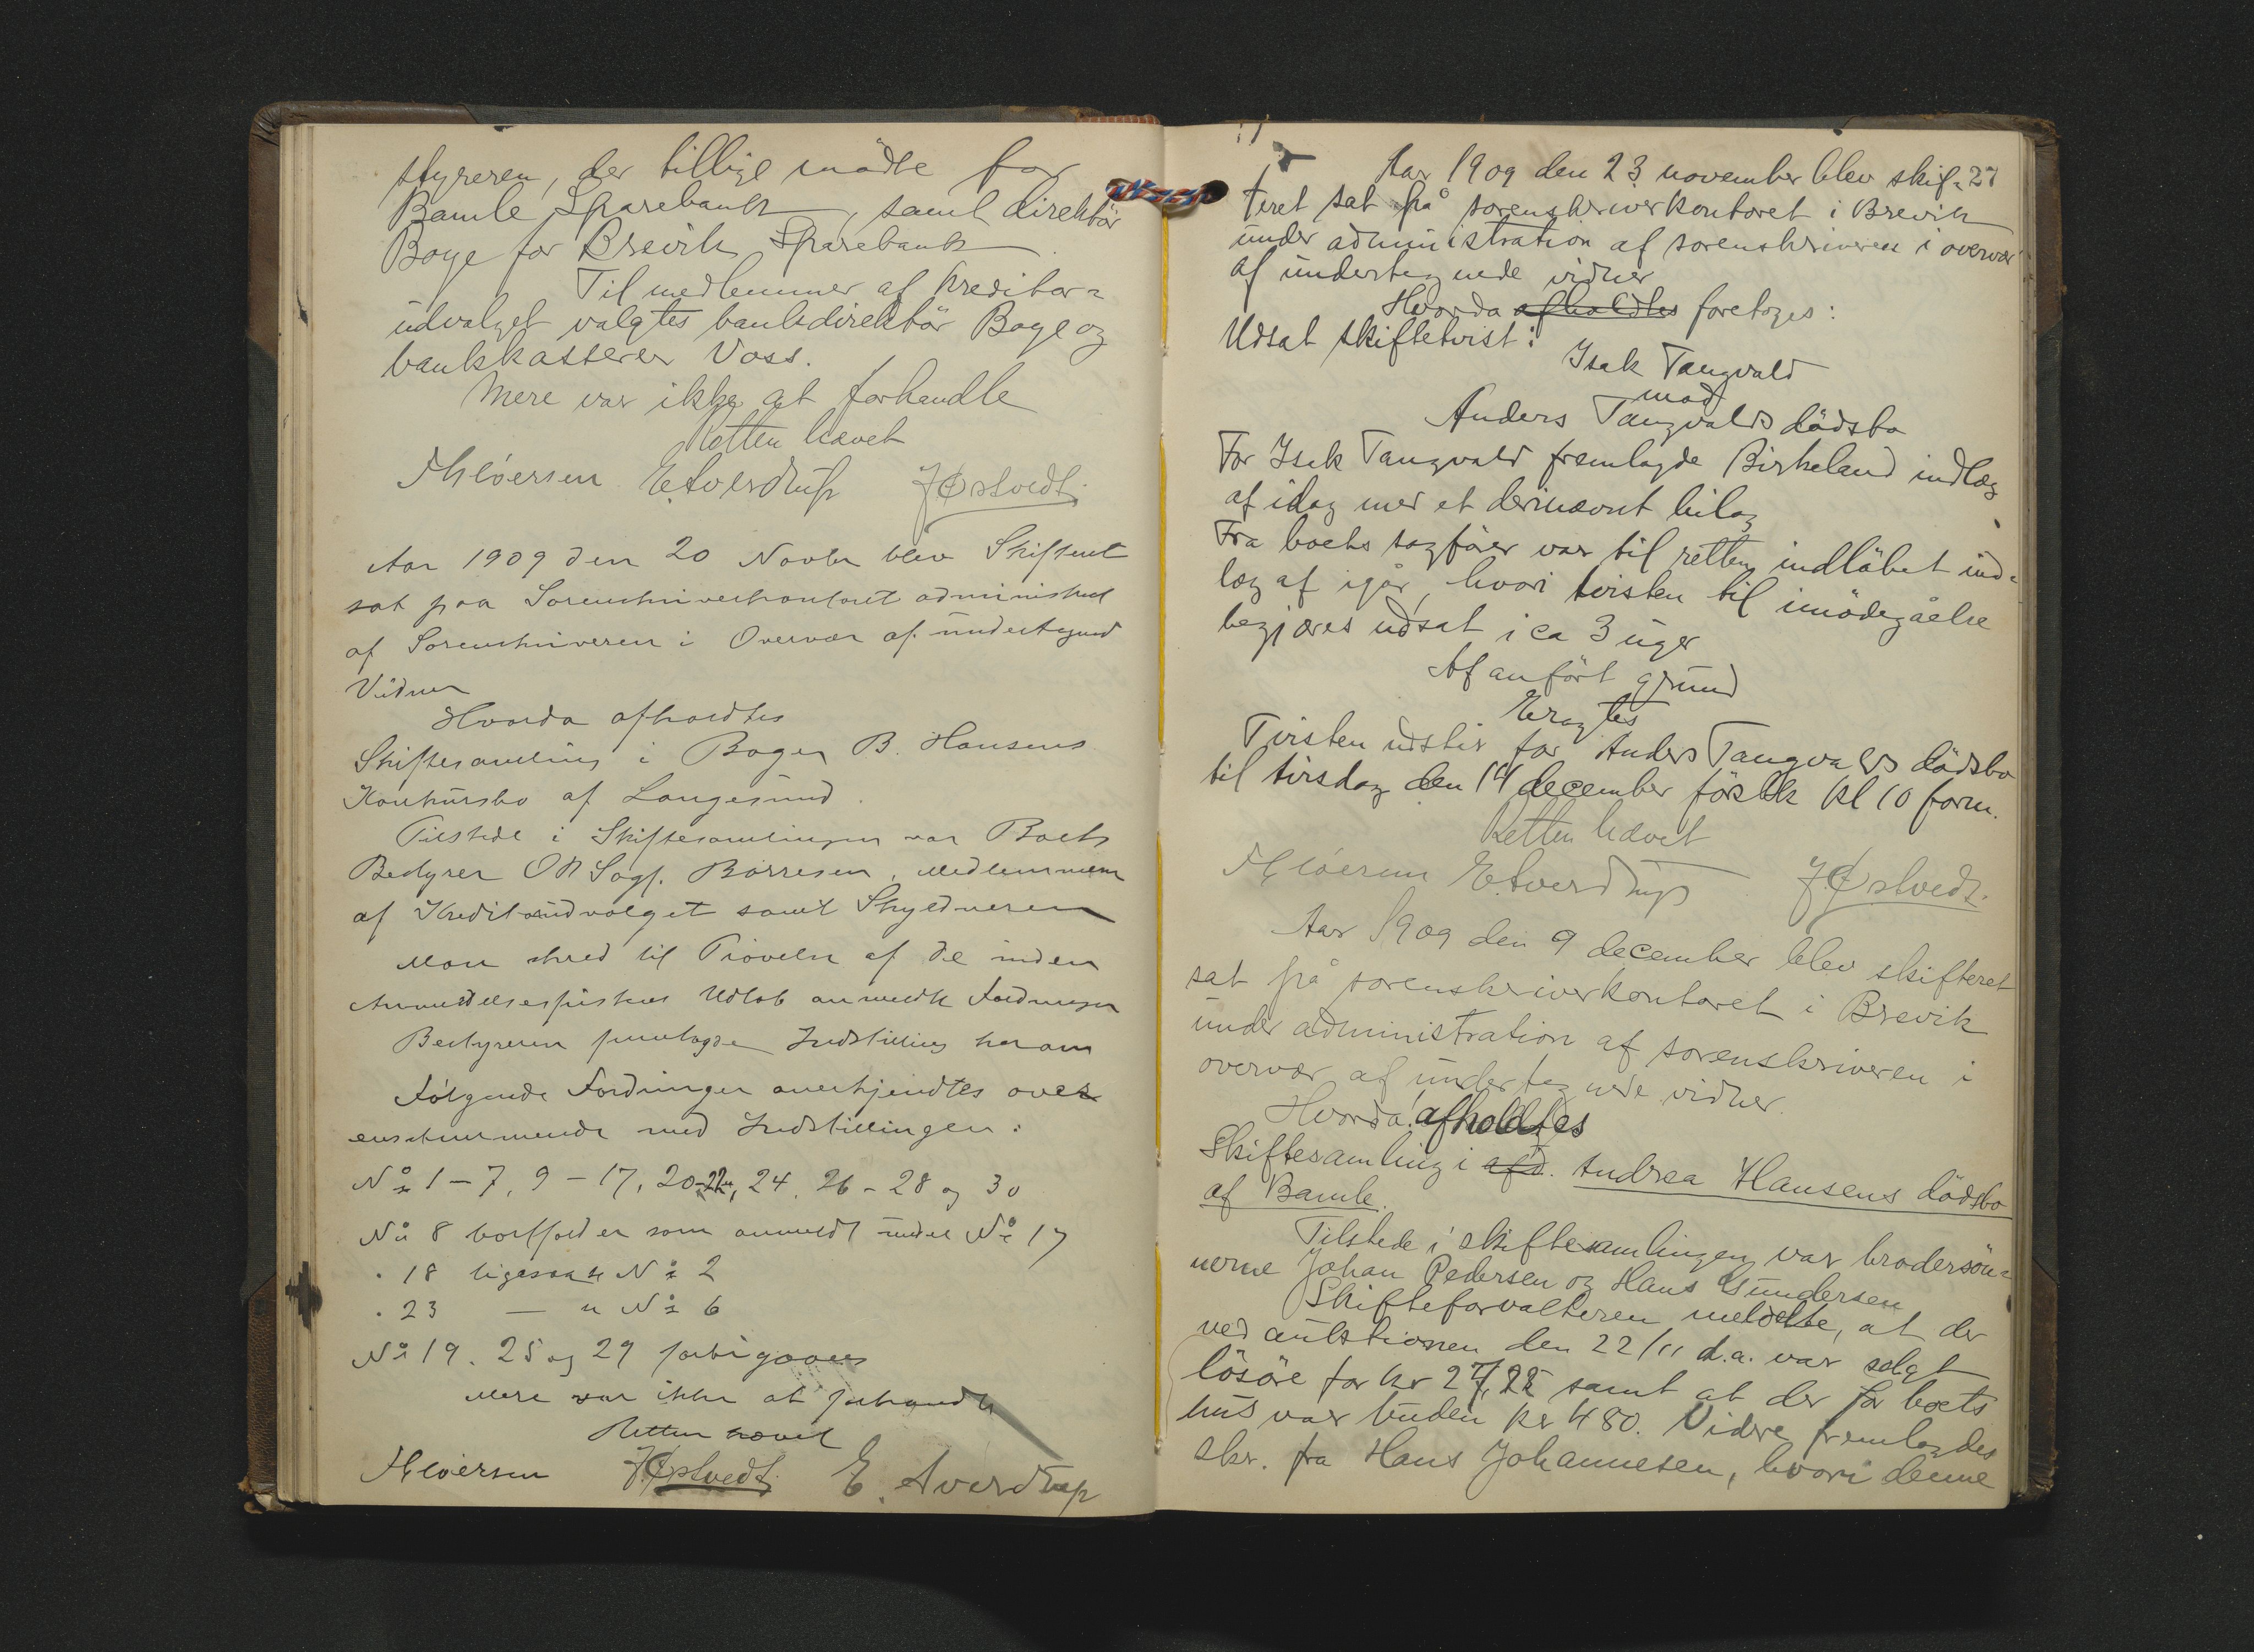 styreren, der tillige mødte for
Bamle Sparebank, samt direktör
Boye for Brevik Sparebank.
Til medlemmer af kreditor=
udvalget valgtes bankdirektör Boye og
bankkasserer Voss.
Mere var ikke at forhandle
Retten hævet
E. Sverdrup J Østvedt.
Aar 1909 den 20 Novbr blev Skifteret
sat paa Sorenskriverkontoret administreret
af Sorenskriveren i Overvær af undertegnede
Vidner
Hvorda afholdtes
Skiftesamling i Bager B. Hansens
Konkursbo af Langesund.
Tilstede i Skiftesamlingen var Boets
Bestyrer O R Sagf. Börresen, Medlemmerne
af Kreditorudvalget samt Skyldneren
Man skred til Prövelse af de inden
Anmeldelsesfristens Udlöb anmeldte Fordringer
Bestyreren fremlagde Indstilling herom
Følgende Fordringer anerkjendtes over
ensstemmende med Indstillingen:
No 1 - 7, 9 - 17, 20-22, 24, 26 - 28 og 30
No 8 bortfalder som anmeldt under No 17
" 18 ligesaa u No 2
" 23 — u No 6
No 19, 25 og 29 forbigaaes
Mere var ikke at forhandle
Retten hævet
J Østvedt. E. Sverdrup
Aar 1909 den 23 november blev skif= 27
teret sat på sorenskriverkontoret i Brevik
under administration af sorenskriveren i overvær
af undertegnede vidner
Hvorda afholdtes foretoges:
Udsat skiftetvist:
Isak Tangvald
mod
Anders Tangvalds dödsbo
For Isak Tangvald fremlagde Birkeland indlæg
af idag med et deri nævnt bilag
Fra boets sagfører var til retten indlöbet ind=
læg af igår, hvori tvisten til imödegåelse
begjæres udsat i ca 3 uger
Af anfört grund
Eragtes
Tvisten udstår for Anders Tangvalds dödsbo
til tirsdag den 14 december förstk kl 10 form.
Retten hævet
E. Sverdrup J. Østvedt.
Aar 1909 den 9 december blev skifteret
sat på sorenskriverkontoret i Brevik
under administration af sorenskriveren i
overvær af undertegnede vidner.
Hvorda afholdtes
Skiftesamling i afd. Andrea Hansens dödsbo
af Bamle.
Tilstede i skiftesamlingen var brodersön=
nerne Johan Pedersen og Hans Gundersen
Skifteforvalteren meldte, at der
ved auktionen den 22/11 d.a. var solgt
lösöre for kr samt at der for boets
hus var buden kr 480. Videre fremlagdes
skr. fra Hans Johannesen, hvori denne